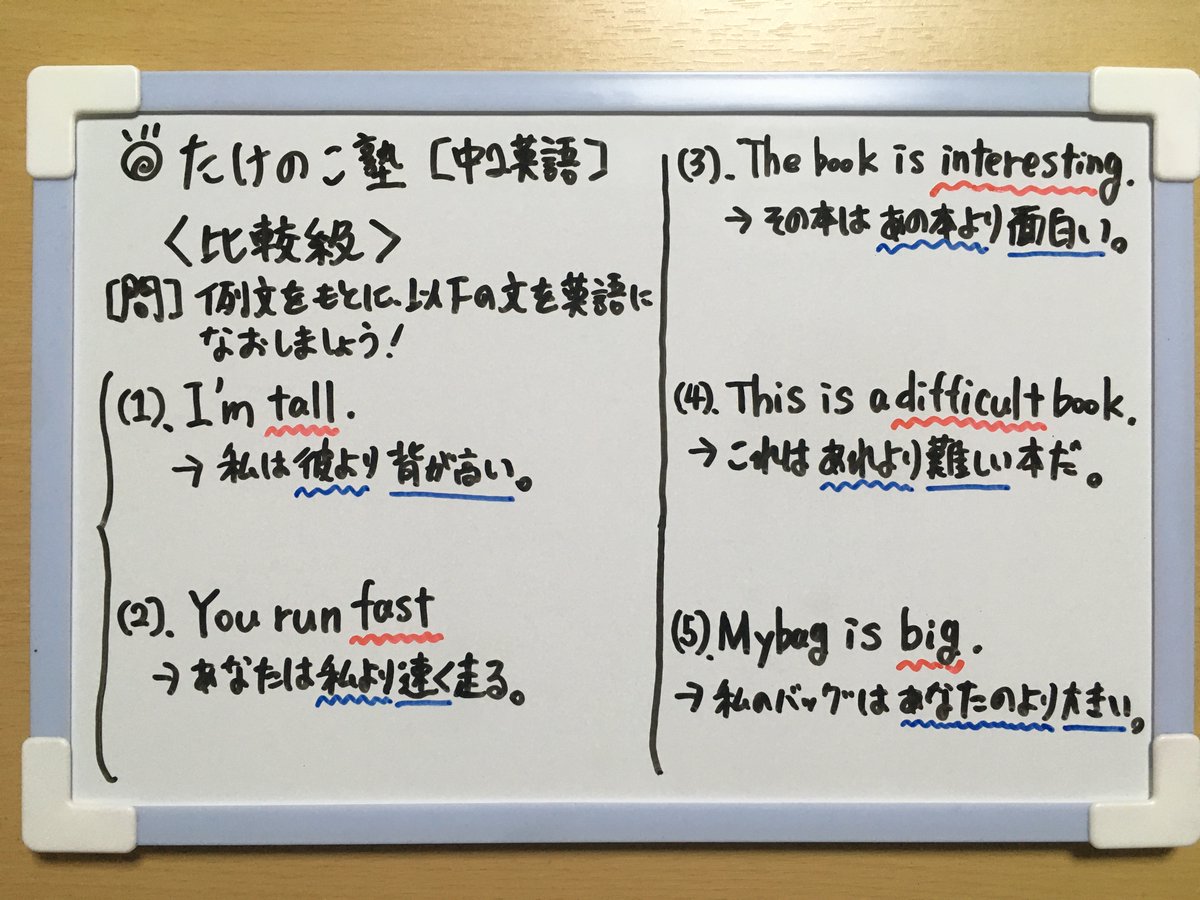 たけのこ塾 [中2英語]
<比較級>
[問] 例文をもとに、以下の文を英語に
なおしましょう!
(1). I'm tall.
→ 私は彼より背が高い。
(2). You run fast
→ あなたは私より速く走る。
(3). The book is interesting.
→ その本はあの本より面白い。
(4). This is a difficult book.
→ これはあれより難しい本だ。
(5). My bag is big.
→ 私のバッグはあなたのより大きい。